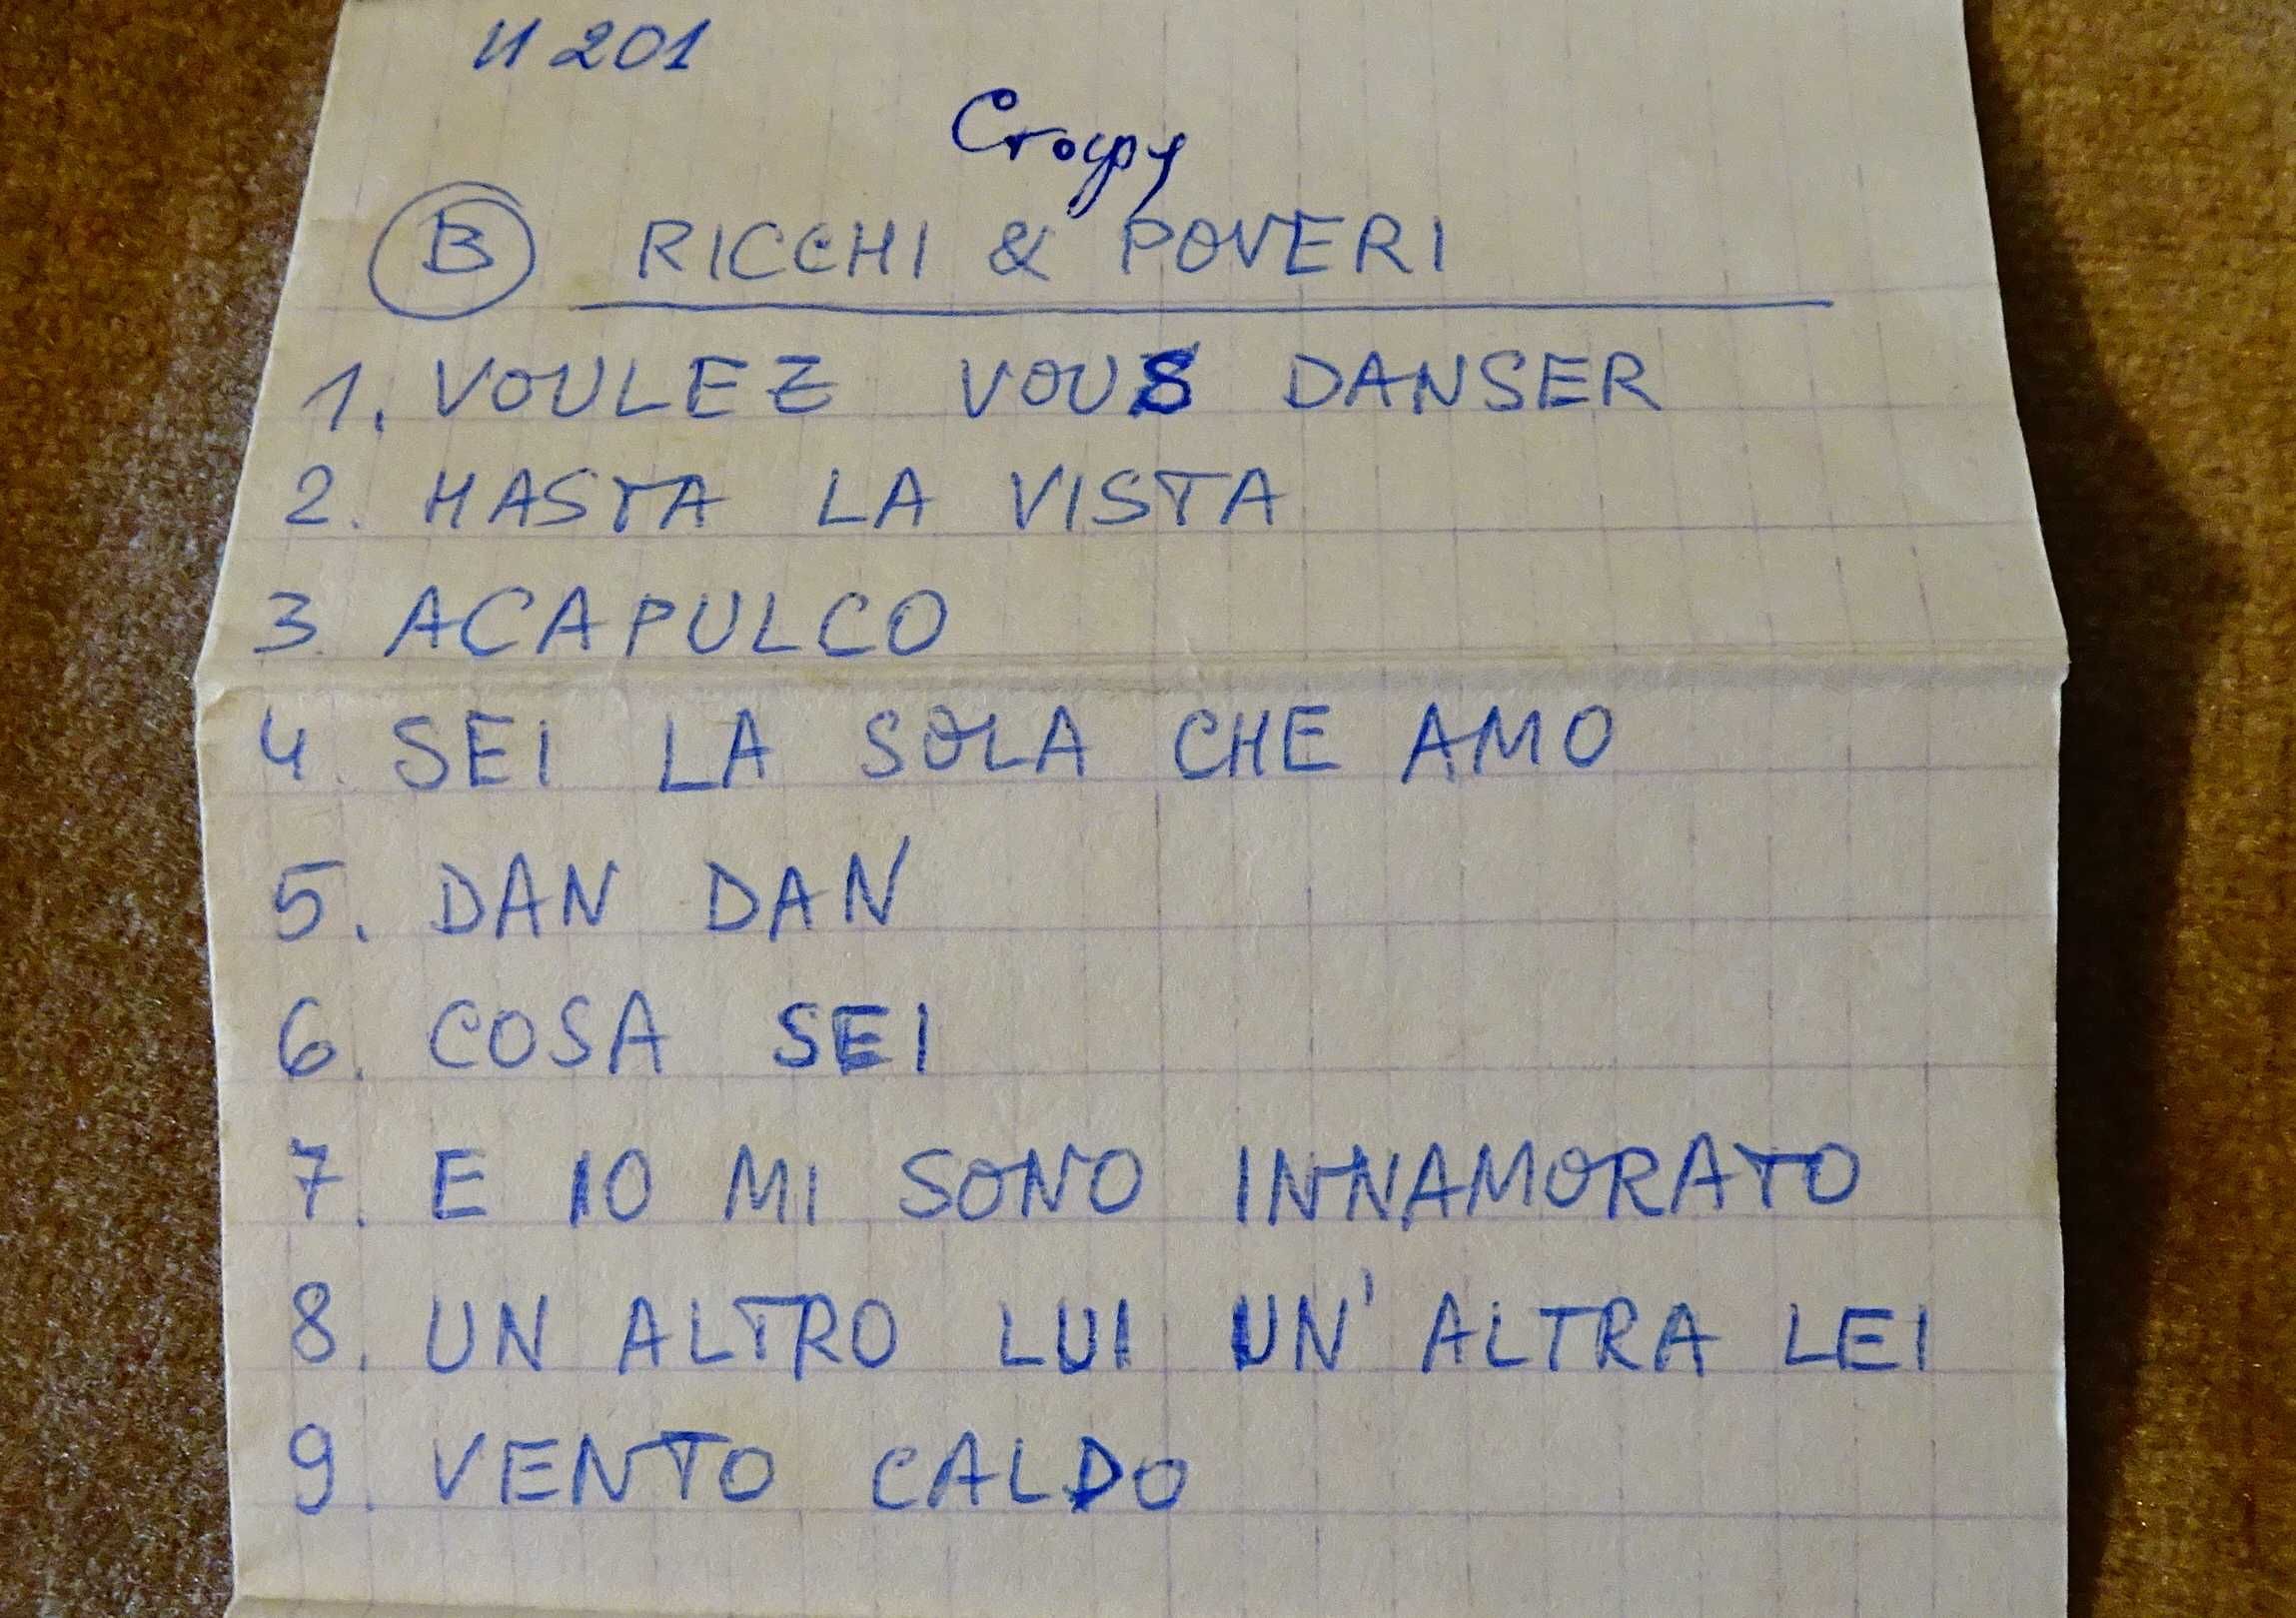 И 201
B RICCHI & POVERI
1. VOULEZ VOUS DANSER
2. HASTA LA VISTA
3. ACAPULCO
4. SEI LA SOLA CHE AMO
5. DAN DAN
6. COSA SEI
7. E IO MI SONO INNAMORATO
8. UN ALTRO LUI UN' ALTRA LEI
9. VENTO CALDO